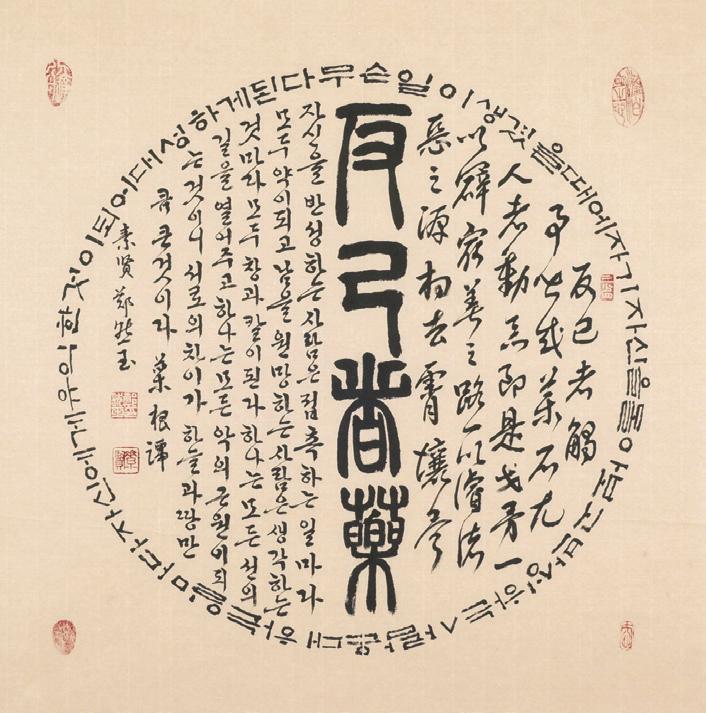 무슨일이생겼을때에자기자신을돌아보고반성하는사람은대하는일마다자신에게는 이되어대성하게된다
反己者觸
事皆成藥石尤
人者動念即是戈矛一
以闢衆善之路一以濬諸
惡之源相去霄壤矣
反己者藥
자신을 반성하는 사람은 접촉하는 일마다
모두 약이되고 남을 원망하는 사람은 생각하는
것마다 모두 창과 칼이된다 하나는 모든 선의
길을 열어주고 하나는 모든 악의 근원이 되
는 것이니 서로의 차이가 하늘과 땅만
큼 큰것이다 菜根譚
素賢 鄭然玉